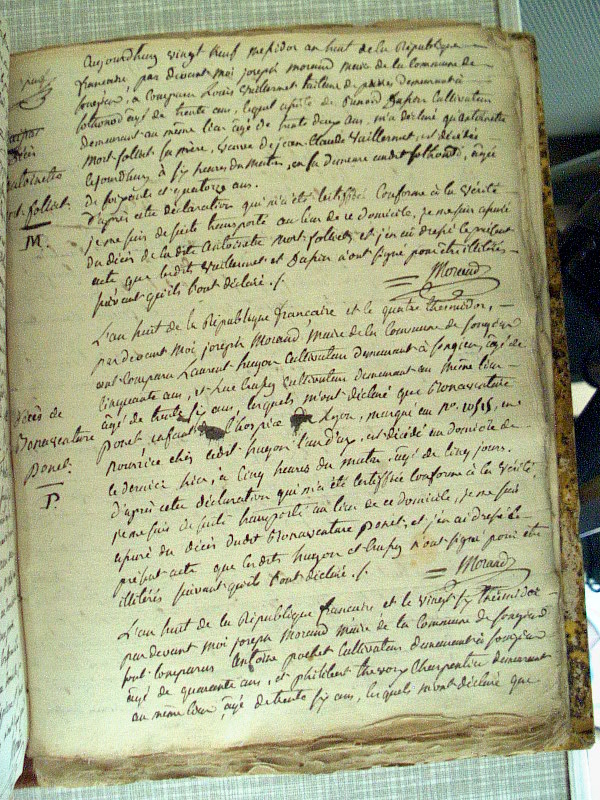 aujourdhuy vingt neuf messidor an huit de la République
francaise, par devant moi joseph morand maire de la commune de
songieu, a comparu Louis Vuillermet tailleur de demeurant à
Sothonod âgé de trente ans, lequel assisté de Dupin cultivateur
demeurant au même lieu âgé de trente deux ans, m'a déclaré qu'antoinette
Mort-follict sa mère, veuve de jean Claude Vuillermet, est décédée
cejourdhuy à six heures du matin, en sa demeure audit Sothonod, âgée
de soixante et quatorze ans.
D'après cette déclaration qui m'a été certifiée conforme à la vérité
je me suis de suite transporté au lieu de ce domicile, je me suis assuré
du décès de la dite antoinette mort-follict, et j'en ai dressé le présent
acte que lesdits Vuillermet et Dupin n'ont signé pour être illitérés
suivant qu'ils l'ont déclaré ./.
Morand
Décès
antoinette
mort-follict
M.
L'an huit de la République francaise et le quatre thermidor,
par devant moi joseph Morand, Maire de la commune de songieu
ont comparu Laurent hugon cultivateur demeurant à songieu, âgé de
cinquante ans, et cultivateur demeurant au même lieu
âgé de trente six ans, lesquels m'ont déclaré que Bonaventure
Ponet enfant de l'hospice de Lyon, marqué au n°. 10515, en
nourrice chez ledit hugon l'un d'eux, est décédé au domicile de
ce dernier hier, à cinq heures du matin, âgé de cinq jours.
D'après cette déclaration qui m'a été certifiée conforme à la vérité,
je me suis de suite transporté au lieu de ce domicile, je me suis
assuré du décès dudit Bonaventure Ponet, et j'en ai dressé le
présent acte que lesdits hugon et n'ont signé pour être
illitérés suivant qu'ils l'ont déclaré ./.
Morand
Décès de
Bonaventure
Ponet
P.
L'an huit de la République francaise et le vingt six thermidor
par devant moi joseph Morand maire de la commune de songieu
sont comparus Antoine pochet cultivateur demeurant à songieu
âgé de quarante ans, et philibert thevory charpentier demeurant
au même lieu, âgé de trente six ans, lesquels m'ont déclaré que